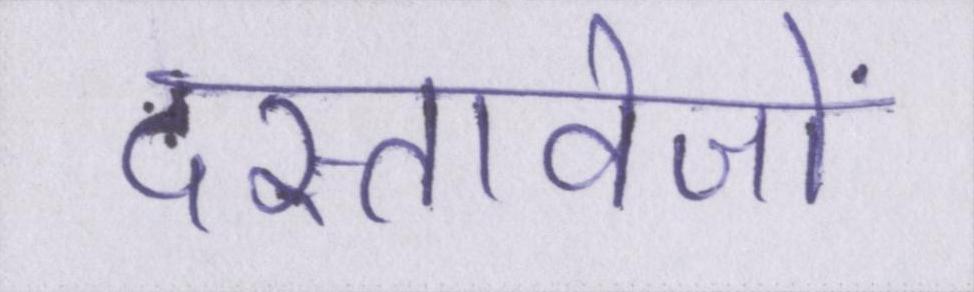 दस्तावेजों